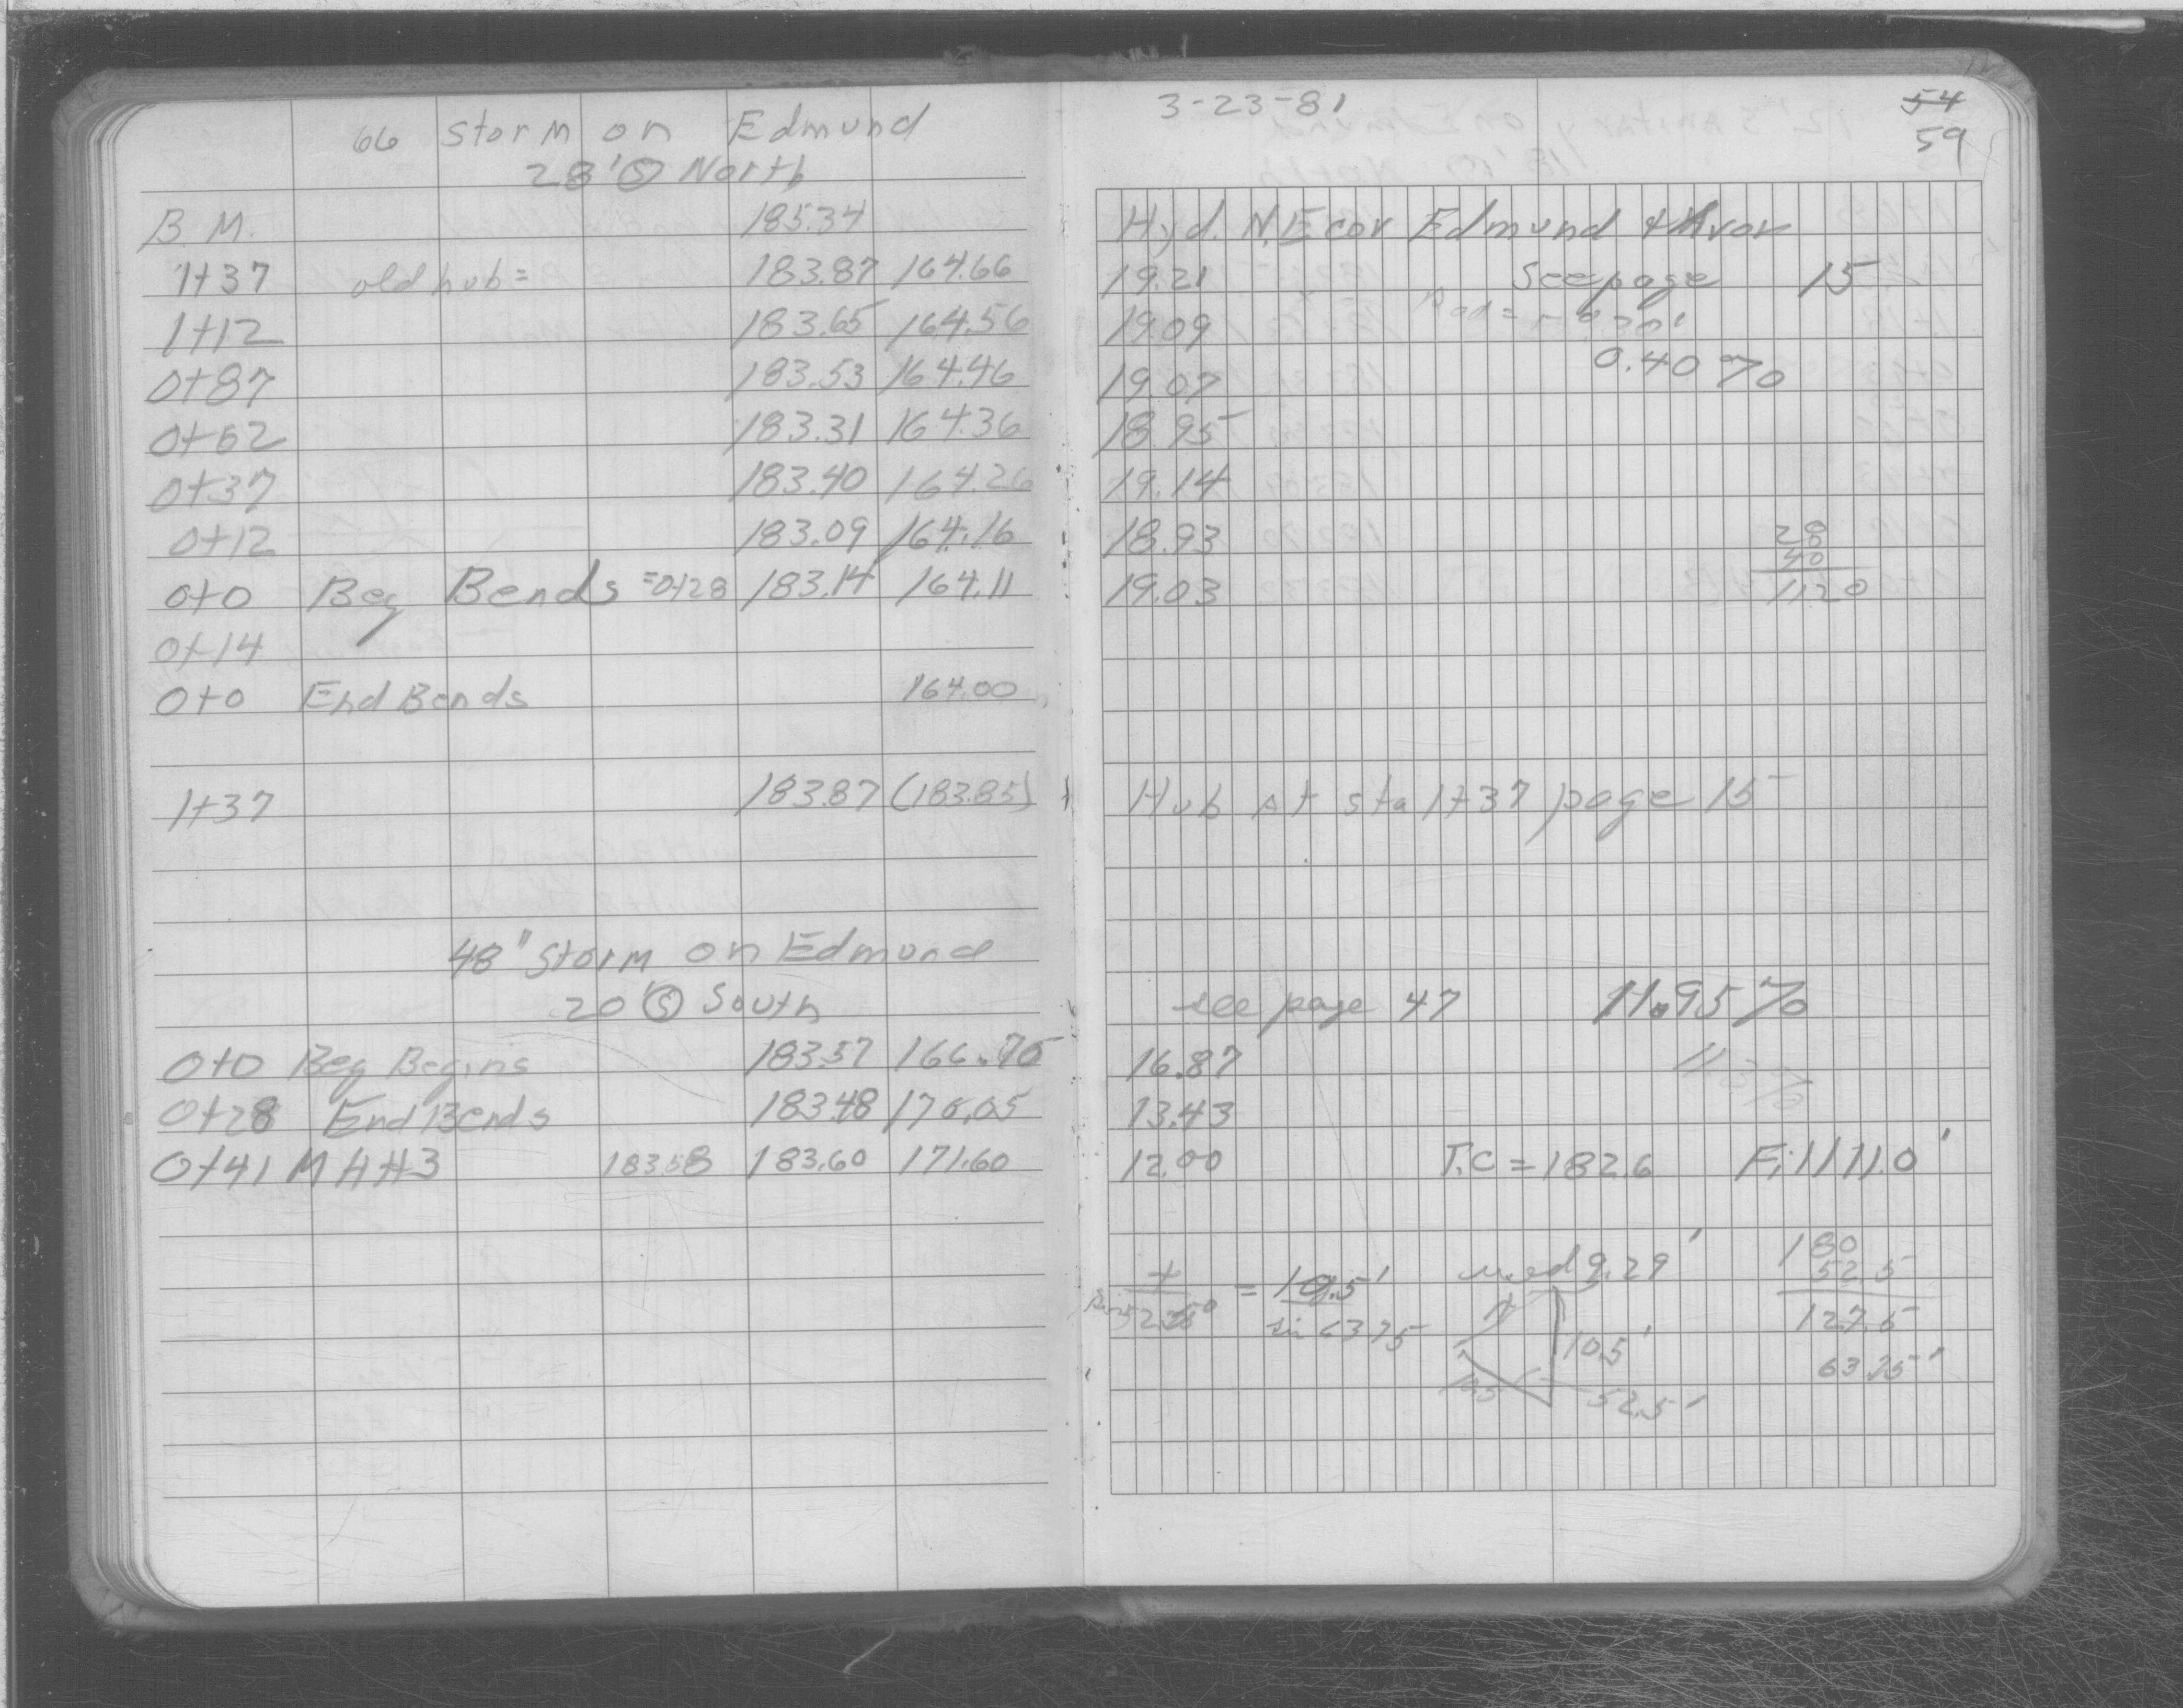 66 Storm on Edmund
28' Ⓢ North
B.M. 185.34
1+37 old hub = 183.87 164.66
1+12 183.65 164.56
0+87 183.53 164.46
0+62 183.31 164.36
0+37 183.40 164.26
0+12 183.09 164.16
0+0 Beg Bends =0+28 183.14 164.11
0+14
0+0 End Bends 164.00
1+37 183.87 (183.85)
48" Storm on Edmund
20' Ⓢ South
0+0 Beg Begins 183.57 166.70
0+28 End Bends 183.48 170.05
0+41 MH#3 183.58 183.60 171.60
3-23-81
54
59
Hyd. N.E cor Edmund + Avon
19.21 See page 15
19.09
19.07 0.40%
18.95
19.14
18.93 28
40
19.03 1120
Hub At sta 1+37 page 15
see page 47 11.95%
16.87
13.43
12.00 T.C = 182.6 Fill 11.0'
= 10.5' used 9.29' 180
52.5
sin 63.75 127.5
10.5'
63.75'
52.5'